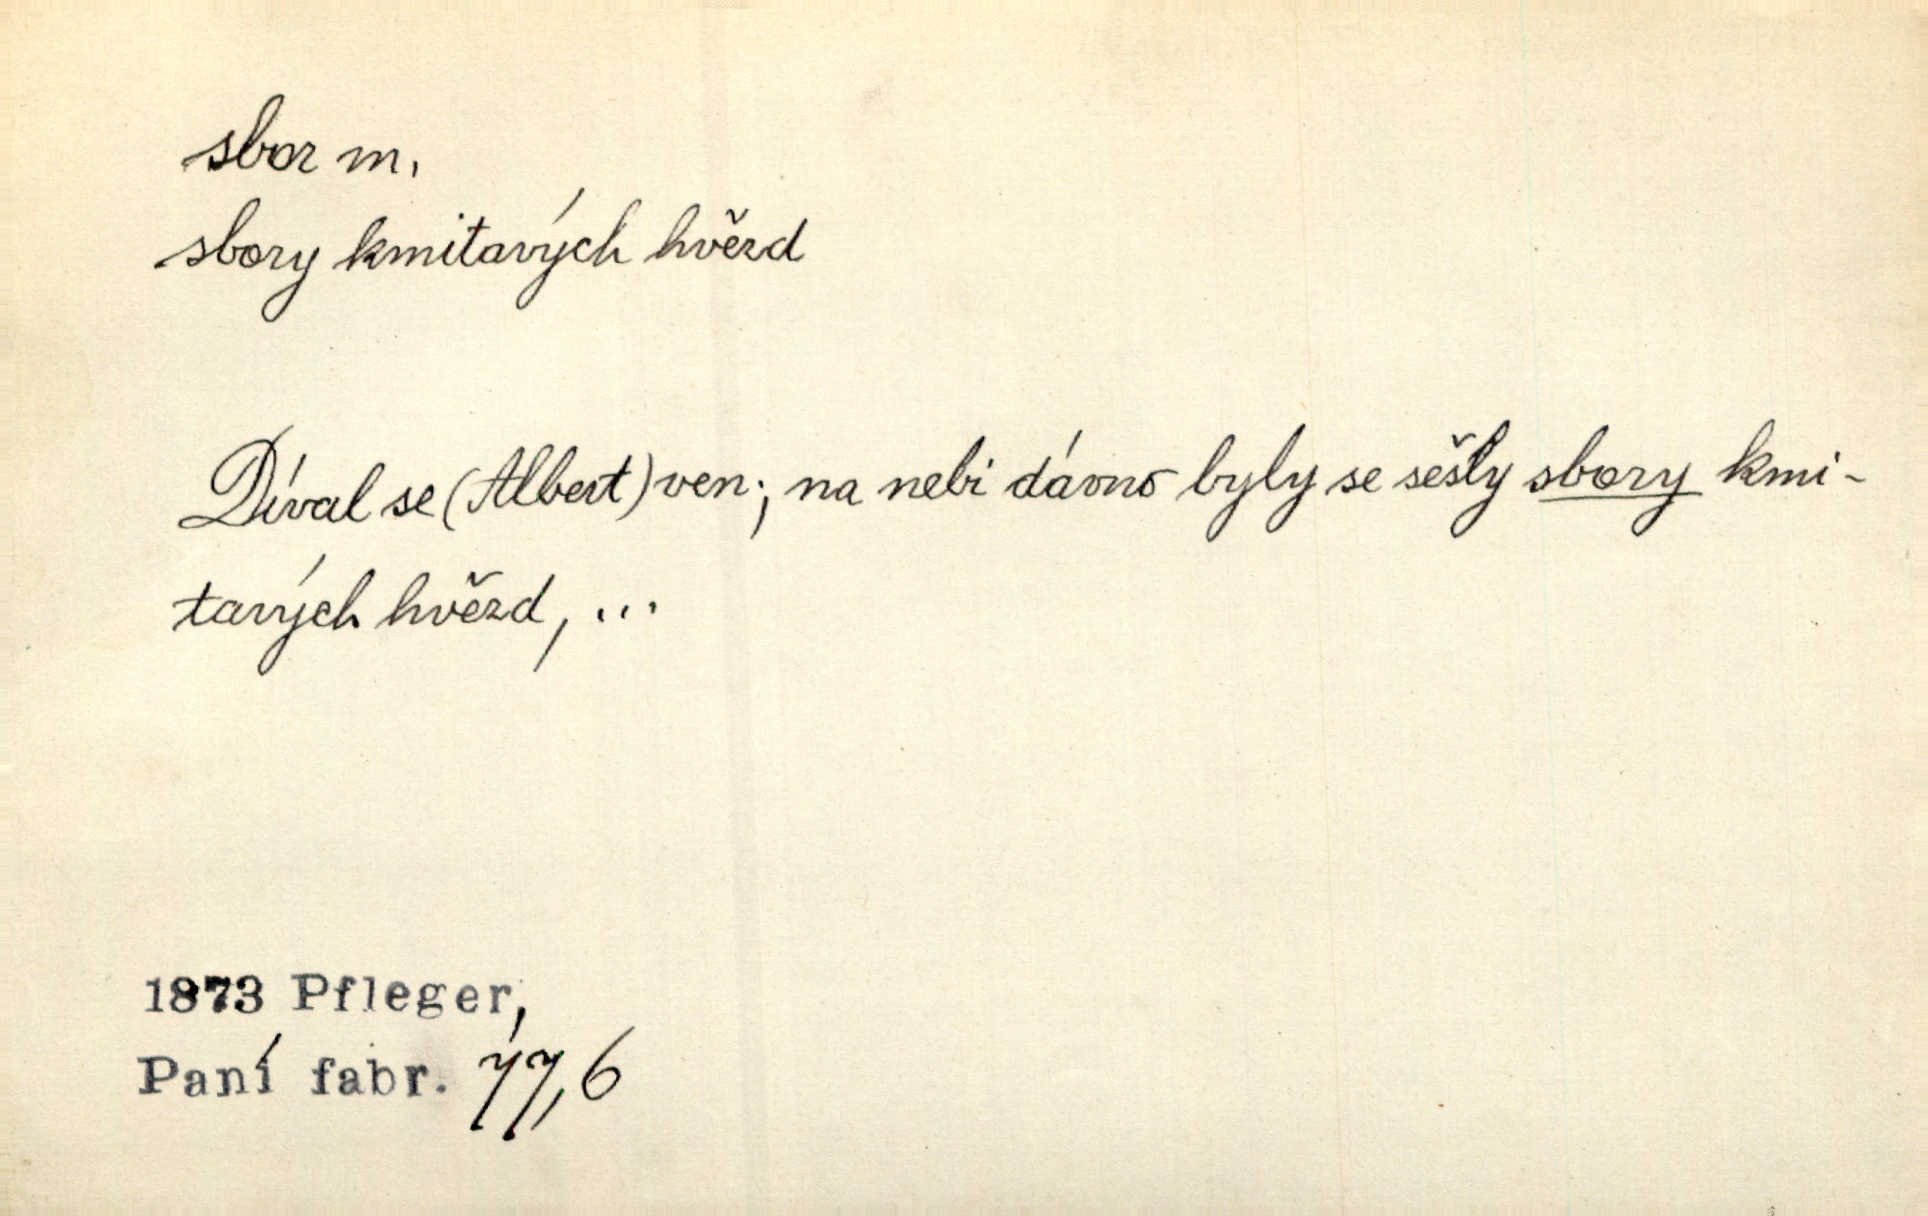 sbor m.
sbory kmitavých hvězd
Díval se (Albert) ven; na nebi dávno byly se sešly sbory kmi-
tavých hvězd, ...
1873 Pfleger,
Paní fabr. 77,6